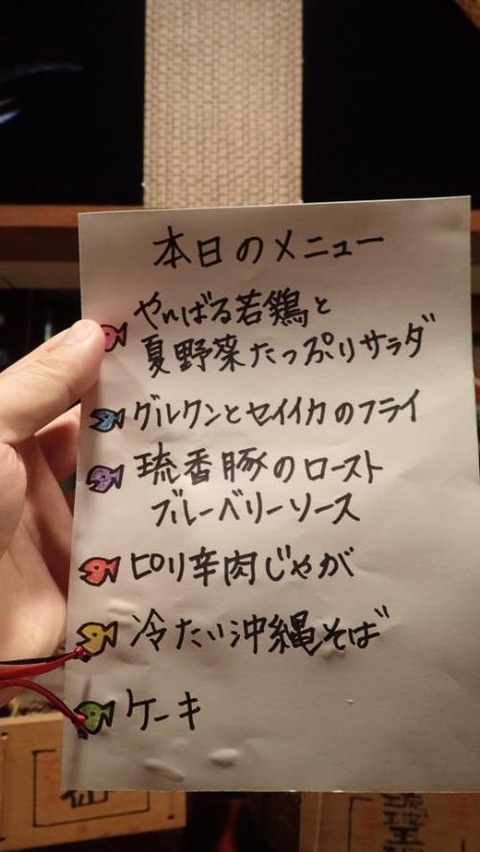 本日のメニュー
やんばる若鶏と
夏野菜たっぷりサラダ
グルクンとセイイカのフライ
琉香豚のロースト
ブルーベリーソース
ピリ辛肉じゃが
冷たい沖縄そば
ケーキ